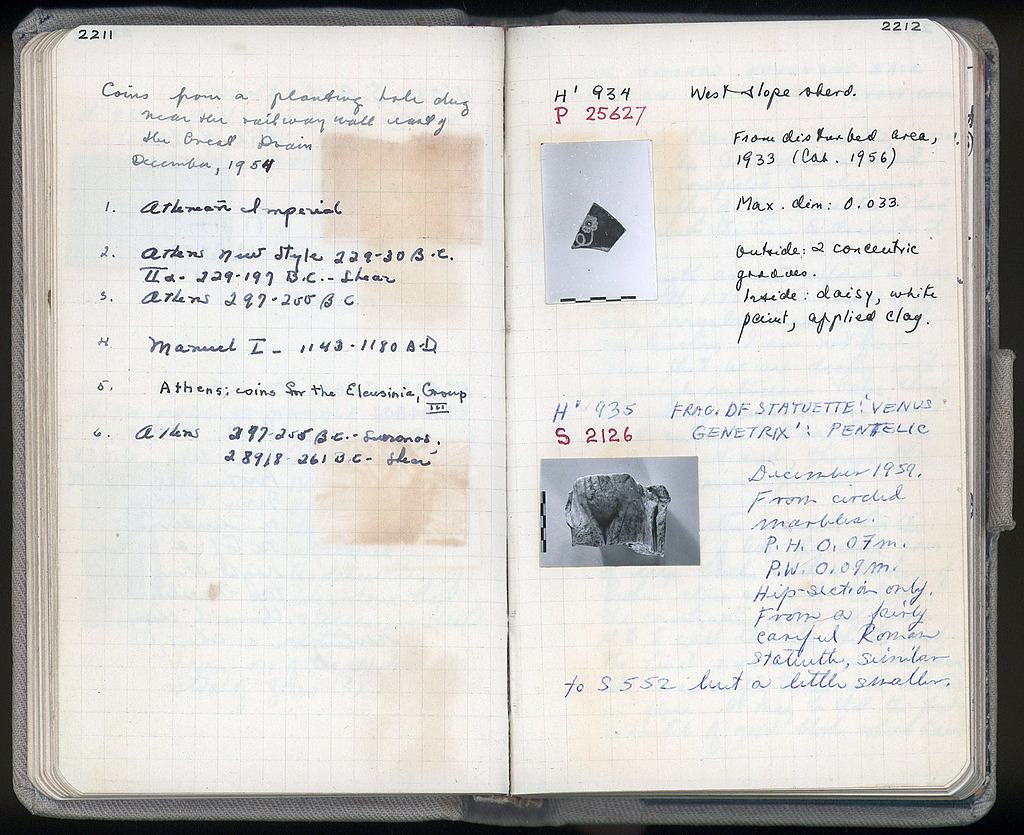 2211
Coins from a planting hole dug
near the railway wall
the Great Drain
December, 1954
1. Athenian Imperial
2. Athens New Style 229-30 B.C.
IIa - 229-197 B.C. - Shear
3. Athens 297-255 B.C.
4 Manuel I - 1143-1180 A.D.
5. Athens; coins for the Eleusinia, Group
III
6. Athens 297-255 B.C. - Svoronos.
289/8-261 B.C. - Shear
2212
H' 934 West slope sherd.
P 25627
From disturbed area,
1933 (Cat. 1956)
Max. dim: 0.033.
Outside: 2 concentric
grooves.
Inside: daisy, white
paint, applied clay.
H' 935 FRAG. OF STATUETTE: 'VENUS
S 2126 GENETRIX': PENTELIC
December 1959.
From circled
marbles.
P.H. 0.07m.
P.W. 0.09m.
Hip-section only.
From a fairly
careful Roman
statuette, similar
to S 552 but a little smaller.